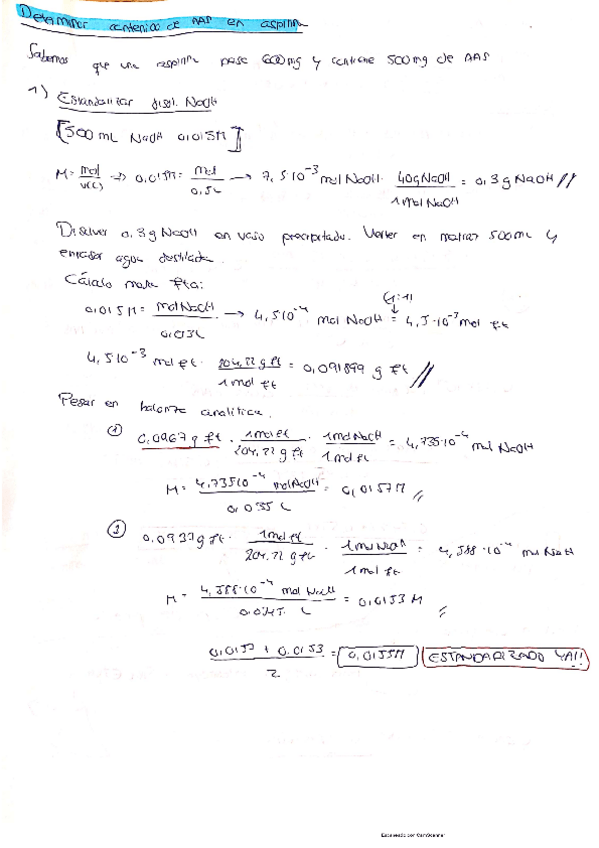 Determinar contenido de AAS en aspirina
Sabemos que una aspirina pesa 600mg y contiene 500mg de AAS
1) Estandarizar disol. NaOH
[500 mL NaOH 0,015M]
M = mol / V(L) → 0,015M = mol / 0,5L → 7,5·10⁻³ mol NaOH · 40g NaOH / 1mol NaOH = 0,3 g NaOH //
Disolver 0,3g NaOH en vaso precipitado. Verter en matraz 500mL y
enrasar agua destilada.
Cálculo masa Fta:
0,015M = mol NaOH / 0,03L → 4,5·10⁻⁴ mol NaOH = 4,5·10⁻³ mol ft
(1:1)
4,5·10⁻³ mol ft · 204,22 g ft / 1 mol ft = 0,091899 g ft //
Pesar en balanza analítica.
① 0,0967 g ft · 1mol ft / 204,22 g ft · 1mol NaOH / 1mol ft = 4,735·10⁻⁴ mol NaOH
M = 4,735·10⁻⁴ mol NaOH / L = 0,0157M //
② g ft · 1mol ft / 204,22 g ft · 1mol NaOH / 1mol ft = 4,588·10⁻⁴ mol NaOH
M = 4,588·10⁻⁴ mol NaOH / L = 0,0153 M //
0,0157 + 0,0153 / 2 = 0,0155M ESTANDARIZADO YA!!
Escaneado con CamScanner